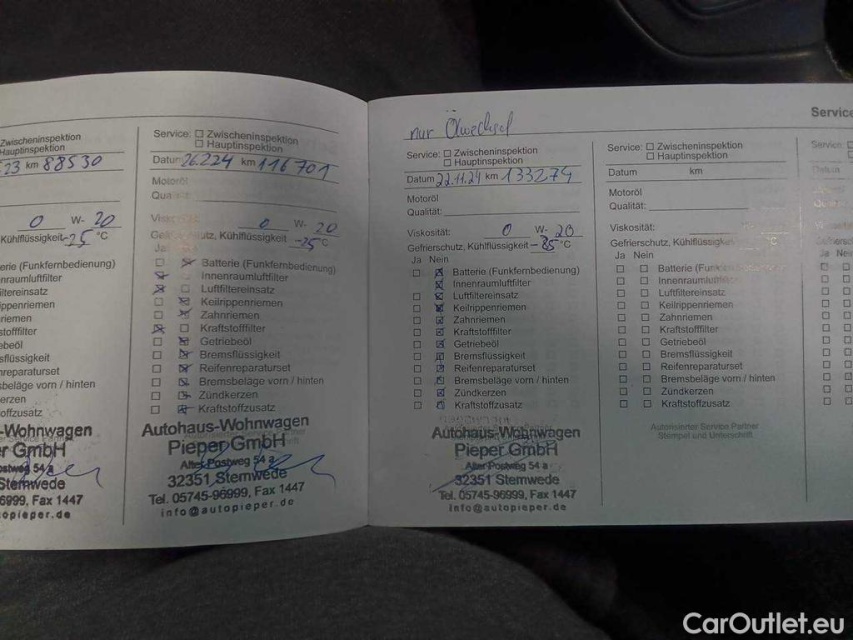 Zwischeninspektion
Hauptinspektion
23 km 88530
0 W- 20
Kühlflüssigkeit -25 °C
erie (Funkfernbedienung)
nraumluftfilter
iltereinsatz
ippenriemen
riemen
stofffilter
ebeöl
sflüssigkeit
nreparaturset
sbeläge vorn / hinten
erzen
offzusatz
-Wohnwagen
r GmbH
ostweg 54 a
Stemwede
6999, Fax 1447
opieper.de
Service: Zwischeninspektion
Hauptinspektion
Datum 26224 km 116701
Motoröl
Qua
Visk 0 W- 20
Gefrierschutz, Kühlflüssigkeit -25 °C
Ja
Batterie (Funkfernbedienung)
Innenraumluftfilter
Luftfiltereinsatz
Keilrippenriemen
Zahnriemen
Kraftstofffilter
Getriebeöl
Bremsflüssigkeit
Reifenreparaturset
Bremsbeläge vorn / hinten
Zündkerzen
Kraftstoffzusatz
Autohaus-Wohnwagen
Pieper GmbH
Alter Postweg 54 a
32351 Stemwede
Tel. 05745-96999, Fax 1447
info@autopieper.de
nur Ölwechsel
Service: Zwischeninspektion
Hauptinspektion
Datum 22.11.24 km 133274
Motoröl
Qualität:
Viskosität: 0 W- 20
Gefrierschutz, Kühlflüssigkeit °C
Ja Nein
Batterie (Funkfernbedienung)
Innenraumluftfilter
Luftfiltereinsatz
Keilrippenriemen
Zahnriemen
Kraftstofffilter
Getriebeöl
Bremsflüssigkeit
Reifenreparaturset
Bremsbeläge vorn / hinten
Zündkerzen
Kraftstoffzusatz
Autohaus-Wohnwagen
Pieper GmbH
Alter Postweg 54 a
32351 Stemwede
Tel. 05745-96999, Fax 1447
info@autopieper.de
Service
Service: Zwischeninspektion
Hauptinspektion
Datum km
Motoröl
Qualität:
Viskosität:
Gefrierschutz, Kühlflüssigkeit °C
Ja Nein
Batterie (Funk
Innenraumluftfilter
Luftfiltereinsatz
Keilrippenriemen
Zahnriemen
Kraftstofffilter
Getriebeöl
Bremsflüssigkeit
Reifenreparaturset
Bremsbeläge vorn / hinten
Zündkerzen
Kraftstoffzusatz
Autorisierter Service Partner
Stempel und Unterschrift
Service:
Datum
CarOutlet.eu